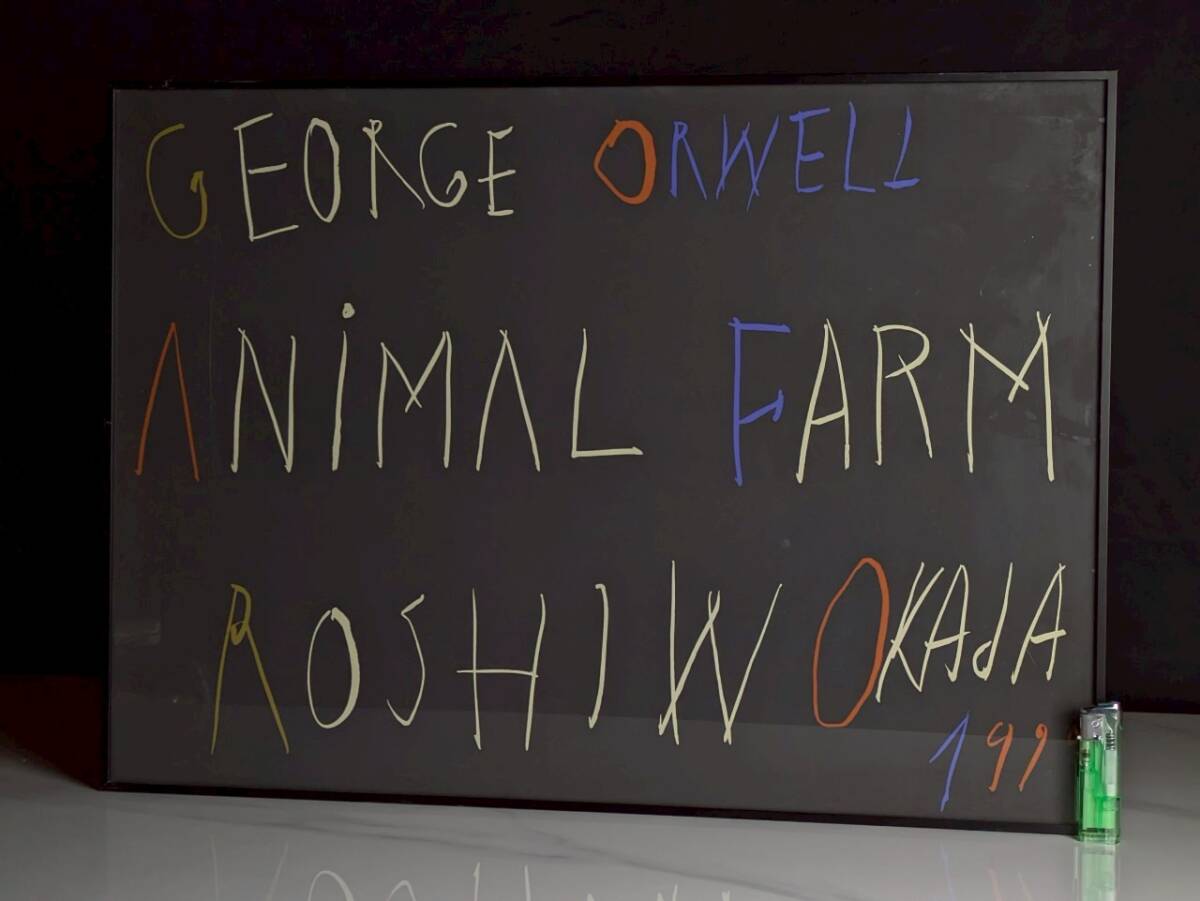 GEORGE ORWELL
ANiMAL FARM
ROSHIW OKAdA
199